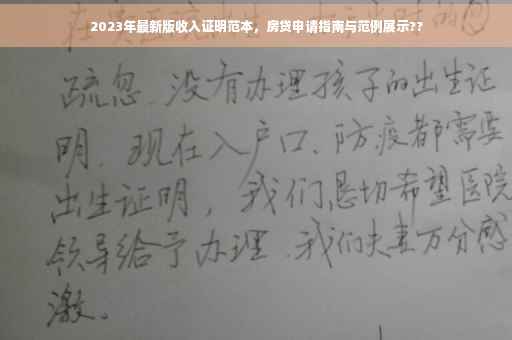 2023年最新版收入证明范本，房贷申请指南与范例展示??
疏忽.没有办理孩子的出生证
明.现在入户口、防疫都需要
出生证明，我们恳切希望医院
领导给予办理.我们夫妻万分感
激。